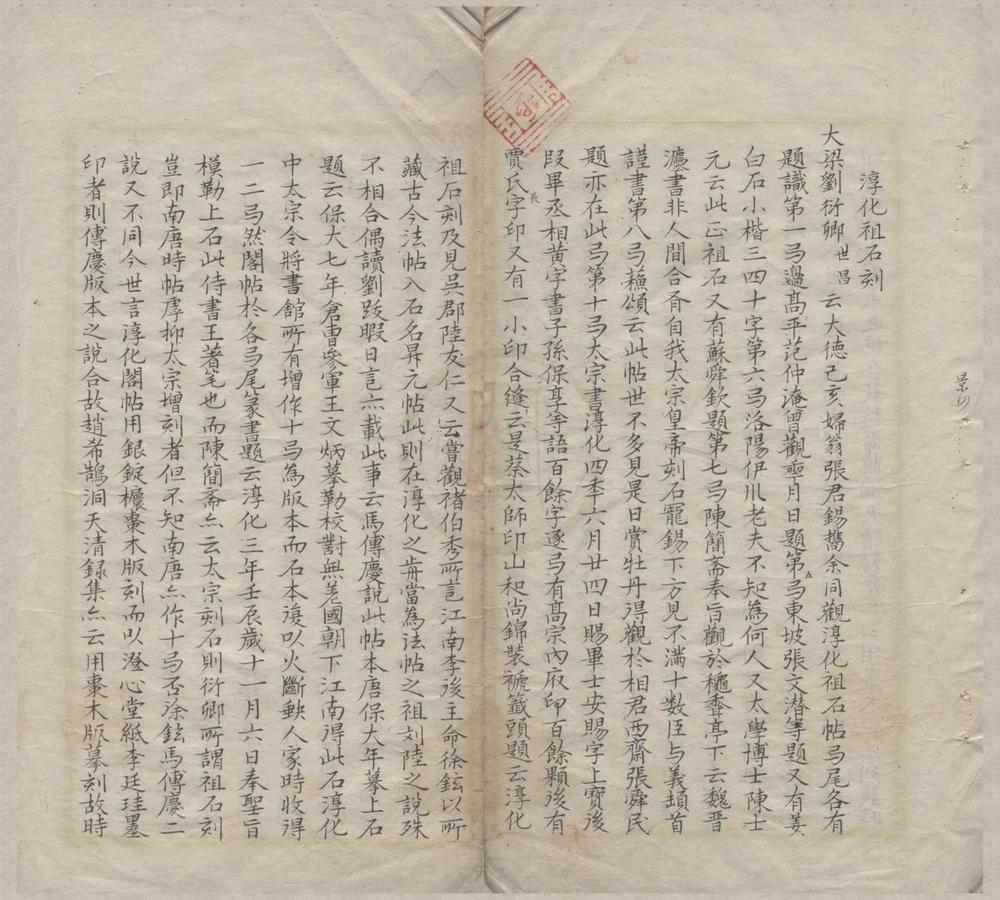 淳化祖石刻
大梁劉衍卿世昌云大德己亥婦翁張君錫攜余同觀淳化祖石帖弓尾各有
題識第一弓邊髙平范仲淹曾觀亝月日題第五弓東坡張文潛等題又有姜
白石小楷三四十字第六弓洛陽伊川老夫不知為何人又太學博士陳士
元云此正祖石又有蘇舜欽題第七弓陳簡斋奉旨觀於穐香亭下云魏晋
灋書非人間合有自我太宗皇帝刻石寵錫下方見不滿十数臣与義頓首
謹書第八弓蘓頌云此帖世不多見是日賞牡丹得觀於相君西齋張舜民
題亦在此弓第十弓太宗書淳化四季六月廿四日賜畢士安賜字上寶後
叚畢丞相黄字書子孫保享等語百餘字逐弓有髙宗內府印百餘顆後有
賈氏長字印又有一小印合縫云是蔡太師印山和尚錦裝褫籤頭題云淳化
祖石刻及見吳郡陸友仁又云嘗觀禇伯秀所言江南李後主命徐鉉以所
藏古今法帖入石名昇元帖此則在淳化之前當為法帖之祖刘陸之說殊
不相合偶讀劉跂暇日言亦載此事云馬傳慶說此帖本唐保大年摹上石
題云保大七年倉曹參軍王文炳摹勒校對無差國朝下江南得此石淳化
中太宗令將書館所有增作十弓為版本而石本復以火斷鈌人家時收得
一二弓然閣帖於各弓尾篆書題云淳化三年壬辰歲十一月六日奉聖旨
模勒上石此侍書王著笔也而陳簡斋亦云太宗刻石則衍卿所謂祖石刻
豈即南唐時帖虖抑太宗增刻者但不知南唐亦作十弓否涂鉉馬傳慶二
說又不同今世言淳化閣帖用銀錠櫰棗木版刻而以澄心堂紙李廷珪墨
印者則傳慶版本之說合故趙希鵠洞天清録集亦云用棗木版摹刻故時